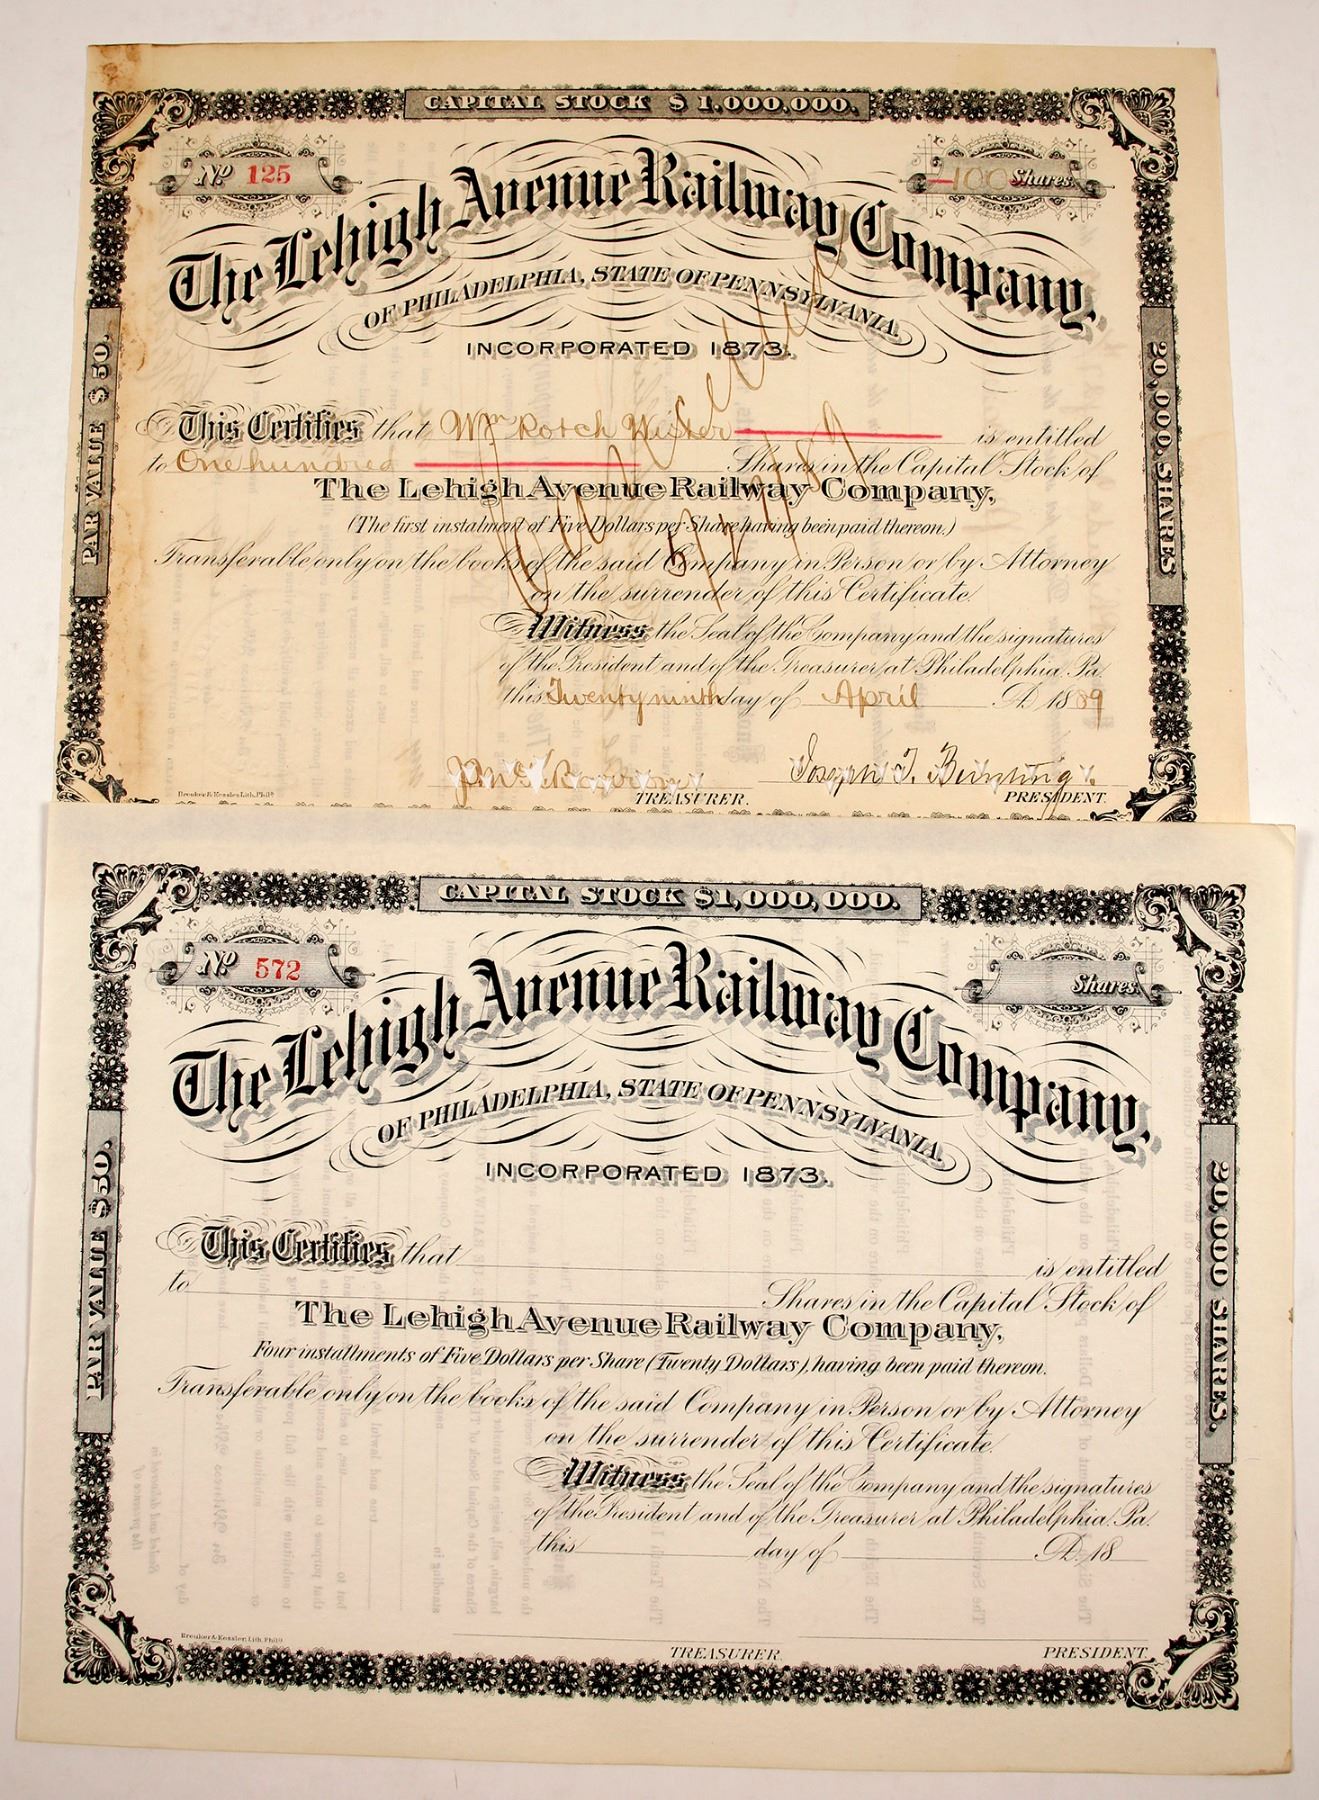 CAPITAL STOCK $1,000,000.
No 125
100 Shares
The Lehigh Avenue Railway Company,
OF PHILADELPHIA, STATE OF PENNSYLVANIA.
INCORPORATED 1873.
PAR VALUE $50.
20,000 SHARES
This Certifies that Wm Rotch Wister is entitled
to One hundred Shares in the Capital Stock of
The Lehigh Avenue Railway Company,
(The first instalment of Five Dollars per Share having been paid thereon.)
Transferable only on the books of the said Company in Person or by Attorney
on the surrender of this Certificate
Witness the Seal of the Company and the signatures
of the President and of the Treasurer, at Philadelphia, Pa.
this Twenty ninth day of April A.D. 1889
Cancelled
TREASURER.
PRESIDENT.
Breuker & Kessler, Lith. Phila.
CAPITAL STOCK $1,000,000.
No 572
Shares
The Lehigh Avenue Railway Company,
OF PHILADELPHIA, STATE OF PENNSYLVANIA.
INCORPORATED 1873.
PAR VALUE $50.
20,000 SHARES.
This Certifies that is entitled
to Shares in the Capital Stock of
The Lehigh Avenue Railway Company,
Four installments of Five Dollars per Share (Twenty Dollars), having been paid thereon.
Transferable only on the books of the said Company in Person or by Attorney
on the surrender of this Certificate
Witness the Seal of the Company and the signatures
of the President and of the Treasurer, at Philadelphia, Pa.
this day of A.D. 18
TREASURER.
PRESIDENT.
Breuker & Kessler, Lith. Phila.